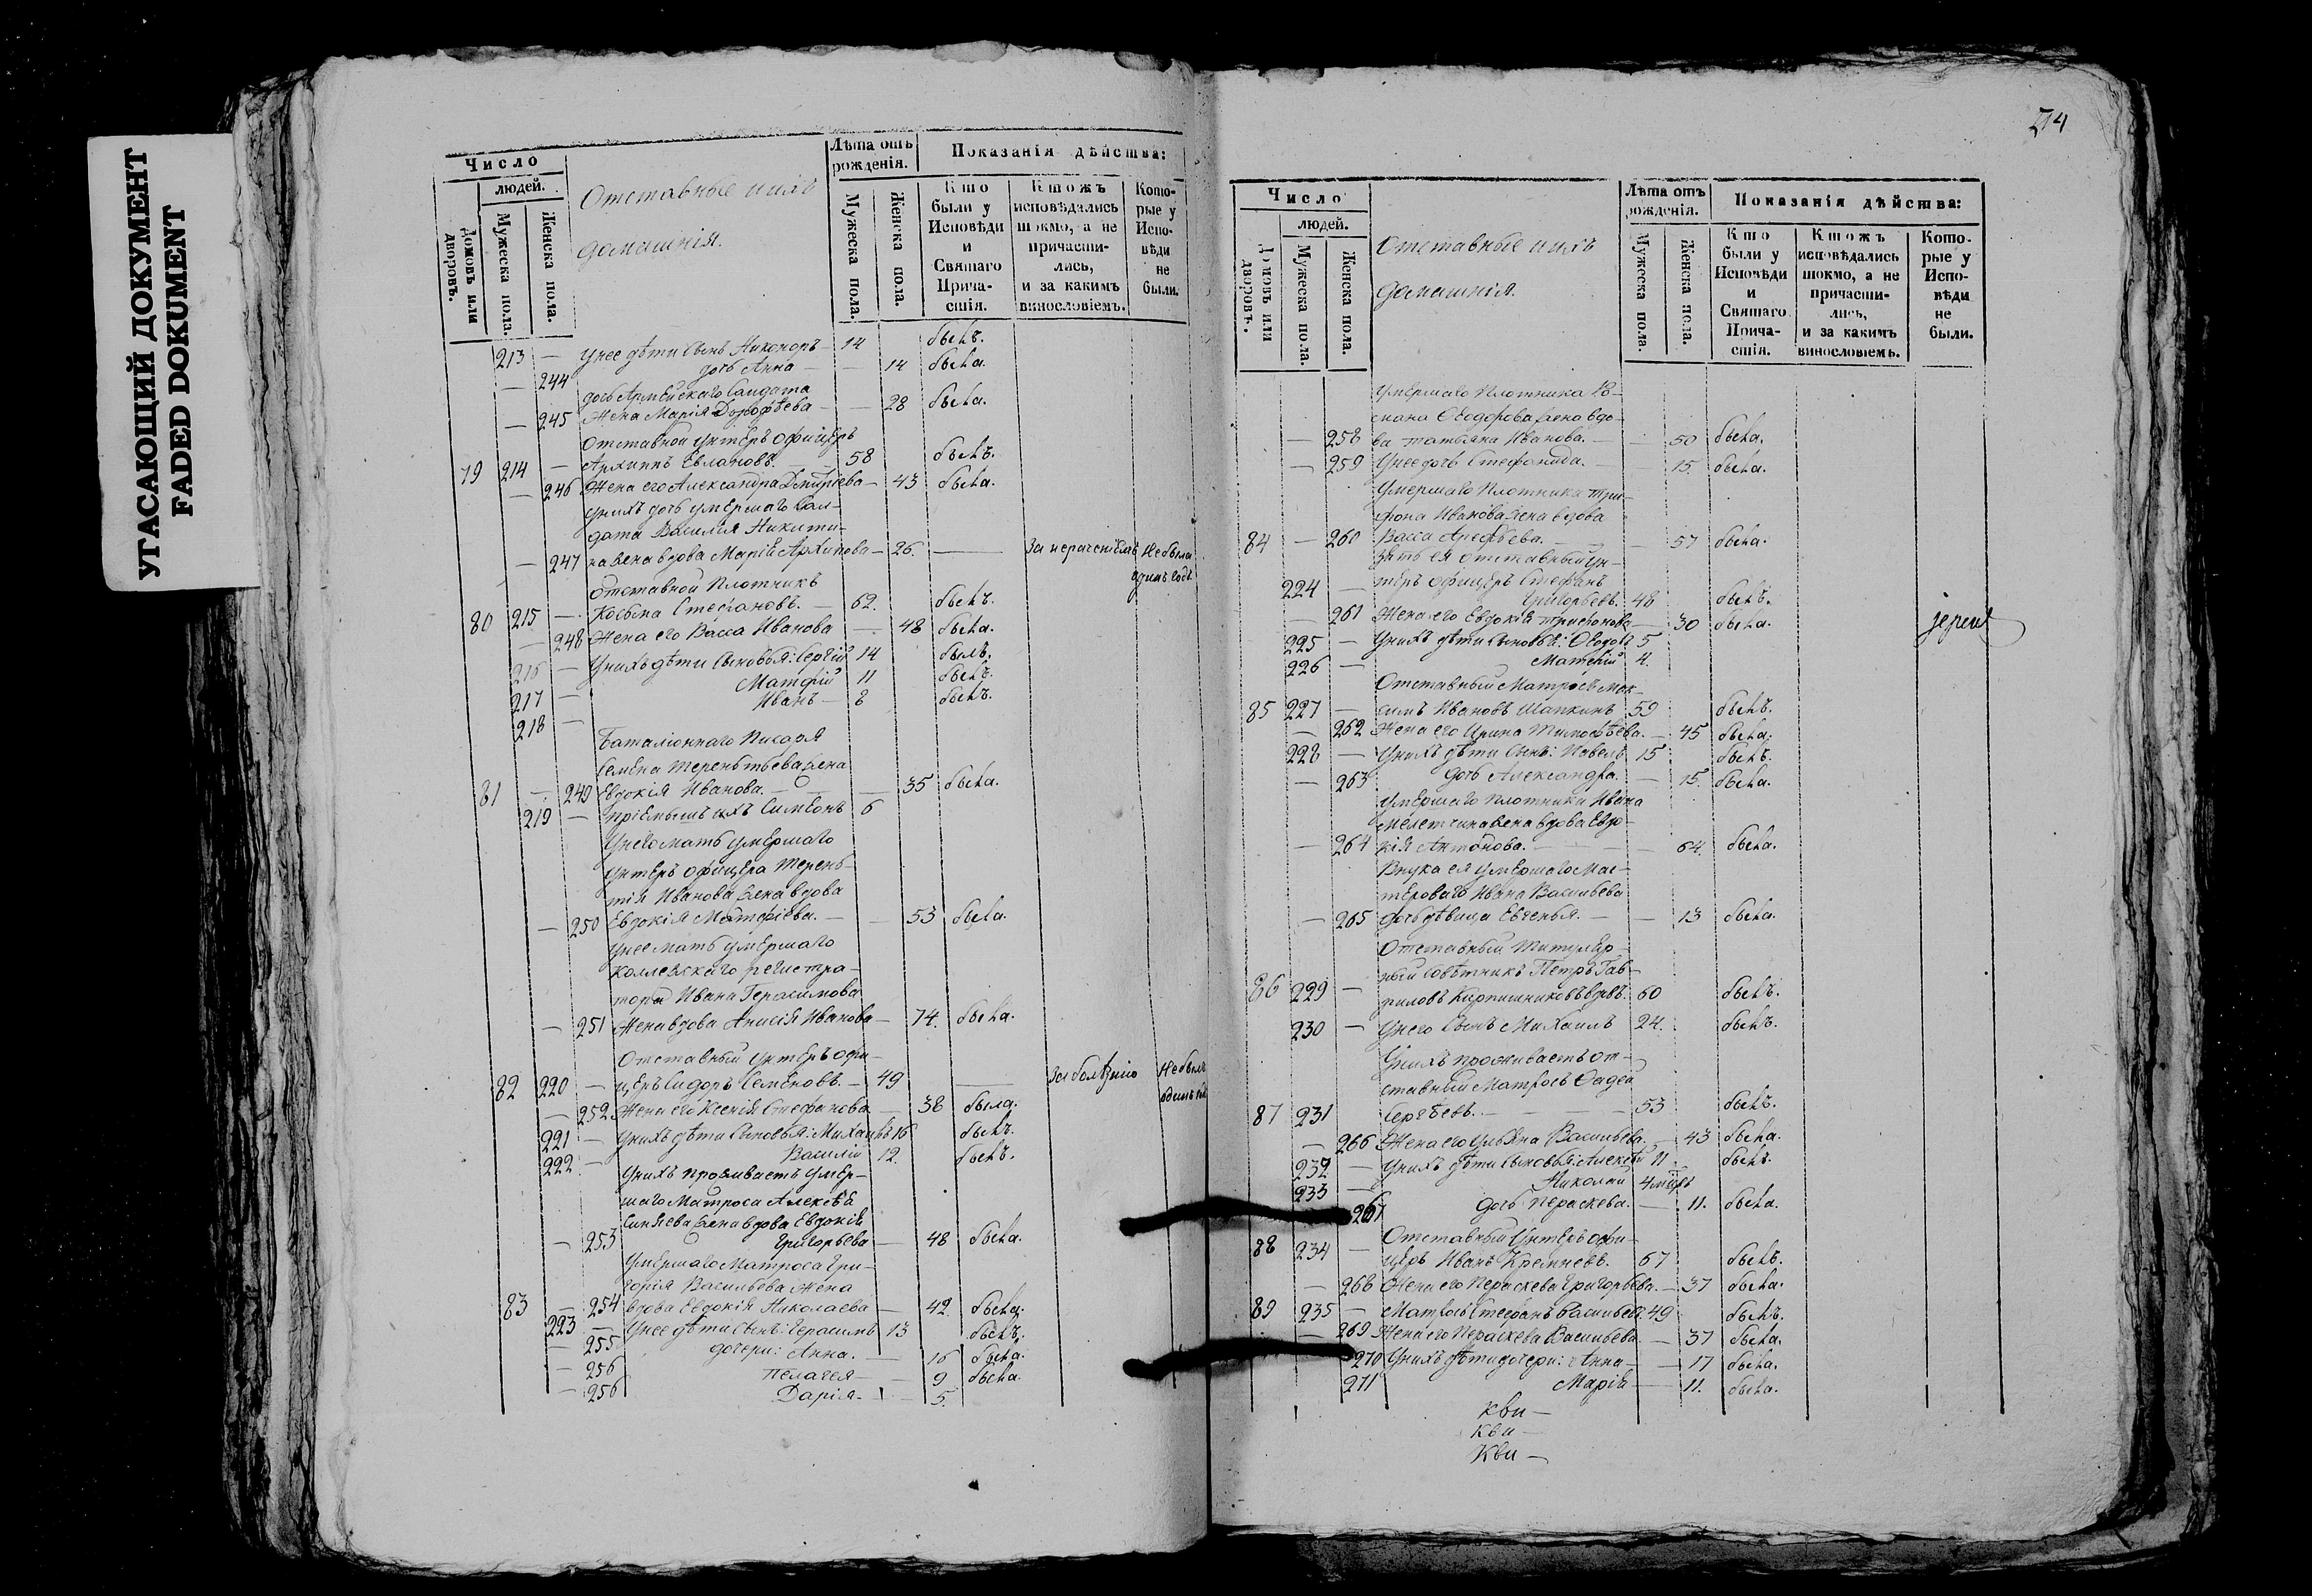 УГАСАЮЩИЙ ДОКУМЕНТ
FADED DOKUMENT
Число
людей.
Домовъ или дворовъ.
Мужеска пола.
Женска пола.
Отставные и ихъ
домашнія.
Лѣта отъ рожденія.
Мужеска пола.
Женска пола.
Показанія дѣйства:
Кто были у Исповѣди и Святаго Причастія.
Ктожъ исповѣдались токмо, а не причастились, и за какимъ винословіемъ.
Которые у Исповѣди не были.
213 — У нее дѣти сынъ Никоноръ — 14 былъ.
— 244 дочь Анна — — 14 была.
дочь Армейскаго Салдата
— 245 Жена Марія Дорофѣева — — 28 была.
Отставной унтеръ офицеръ
79 214 — Архиппъ Евлановъ. 58 былъ.
— 246 Жена его Александра Дмитріева — 43 была.
У нихъ дочь умершаго Сал-
дата Василія Никити-
— 247 на жена вдова Марія Архипова — 26. — За нерачѣніемъ Не была
одинъ годъ
Отставной Плотникъ
80 215 — Косьма Стефановъ. — 62. былъ.
— 248 Жена его Васса Иванова — 48 была.
216 — У нихъ дѣти сыновья: Сергій 14 былъ.
217 — Матфій 11 былъ.
218 — Иванъ — 8 былъ.
Баталіоннаго Писаря
Семена Терентьева жена
81 — 249 Евдокія Иванова. — — 35 была.
219 — Пріемышъ ихъ Симеонъ 6
У него мать умершаго
Унтеръ офицера Терен-
тія Иванова жена вдова
— 250 Евдокія Матфіева. — — 53 была.
У нее мать умершаго
Коллежскаго регистра-
тора Ивана Герасимова
— 251 Жена вдова Анисія Иванова — 74. была.
Отставный унтеръ офи-
82 220 — церъ Сидоръ Семеновъ. — 49 — За болѣзнію Не былъ
одинъ годъ
— 252 Жена его Ксенія Стефанова — 38 была.
221 — У нихъ дѣти сыновья: Михаилъ 16 былъ.
222 — Василій 12. былъ.
У нихъ проживаетъ умер-
шаго Матроса Алексѣя
Синяева жена вдова Евдокія
— 253 Григорьева — 48 была.
Умершаго Матроса Гри-
горія Васильева жена
83 — 254 вдова Евдокія Николаева — 42. была.
223 — У нее дѣти сынъ: Герасимъ 13 былъ.
— 255 дочери: Анна. — 16 была.
— 256 Пелагея — — 9 была.
— 256 Дарія. — — 5.
274
Число
людей.
Домовъ или дворовъ.
Мужеска пола.
Женска пола.
Отставные и ихъ
домашнія.
Лѣта отъ рожденія.
Мужеска пола.
Женска пола.
Показанія дѣйства:
Кто были у Исповѣди и Святаго Причастія.
Ктожъ исповѣдались токмо, а не причастились, и за какимъ винословіемъ.
Которые у Исповѣди не были.
Умершаго Плотника Ро-
мана Ѳеодорова жена вдо-
— 258 ва Татьяна Иванова. — — 50 была.
— 259 У нее дочь Стефанида. — 15. была.
Умершаго Плотника Три-
фона Иванова жена вдова
84 — 260 Васса Арефьева. — — 57 была.
Зять ея отставный ун-
224 — теръ офицеръ Стефанъ
Григорьевъ. 48 былъ.
— 261 Жена его Евдокія Трифонова — 30 была.
225 — У нихъ дѣти сыновья: Ѳеодоръ 5
226 — Матѳій 4.
Отставный Матросъ Мак-
85 227 — симъ Ивановъ Шапкинъ 59 былъ.
— 262 Жена его Ирина Тимофѣева. — 45 была.
228 — У нихъ дѣти сынъ: Павелъ 15 былъ.
— 263 дочь Александра. — 15. была.
Умершаго Плотника Ивана
жена вдова Евдо-
— 264 кія Антонова. — — 64. была.
Внука ея умершаго Мас-
тероваго Ивана Васильева
— 265 дочь дѣвица Евгенья. — — 13 была.
Отставный Титуляр-
ный совѣтникъ Петръ Гав-
86 229 — риловъ Кирпишниковъ вдовъ. 60 былъ.
230 — У него сынъ Михаилъ 24. былъ.
У нихъ проживаетъ от-
ставный Матросъ Ѳадей
87 231 Сергѣевъ. — — 53 былъ.
— 266 Жена его Ульяна Васильева. — 43 была.
232 — У нихъ дѣти сыновья: Алексѣй 11 былъ.
233 — Николай 4
267 дочь Пераскева. — 11. была.
Отставный Унтеръ офи-
88 234 — церъ Иванъ Кремневъ. 67 былъ.
— 268 Жена его Пераскева Григорьева. — 37 была.
89 235 — Матросъ Стефанъ Васильевъ 49 былъ.
— 269 Жена его Пераскева Васильева. — 37 была.
270 У нихъ дѣти дочери: Анна — — 17 была.
271 Марія — 11. была.